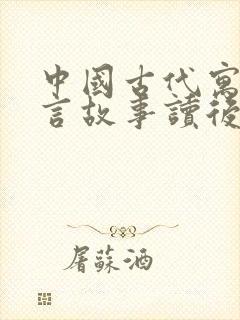 中國古代寓
言故事讀後
屠蘇酒